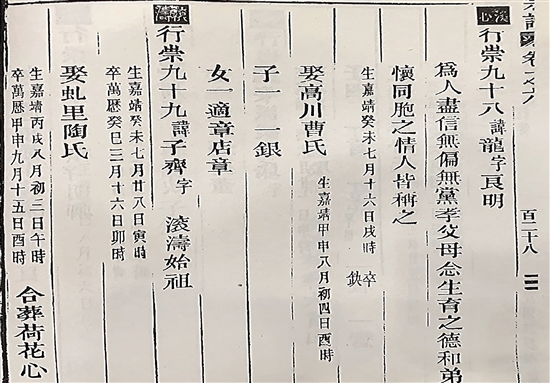 百二十八
行崇九十八諱龍字良明
爲人盡信無偏無黨孝父母念生育之德和弟
懷同胞之情人皆稱之
生嘉靖癸未七月十六日戌時 卒 缺
娶高川曹氏 生嘉靖甲申八月初四日酉時
子一 一銀
女一適章店章
滚濤
行崇九十九諱子齊字 滚濤始祖
生嘉靖癸未七月廿八日寅時
卒萬歷癸巳三月十六日卯時
娶虬里陶氏
生嘉靖丙戌八月初三日午時
卒萬歷甲申九月十五日酉時
合葬荷花心